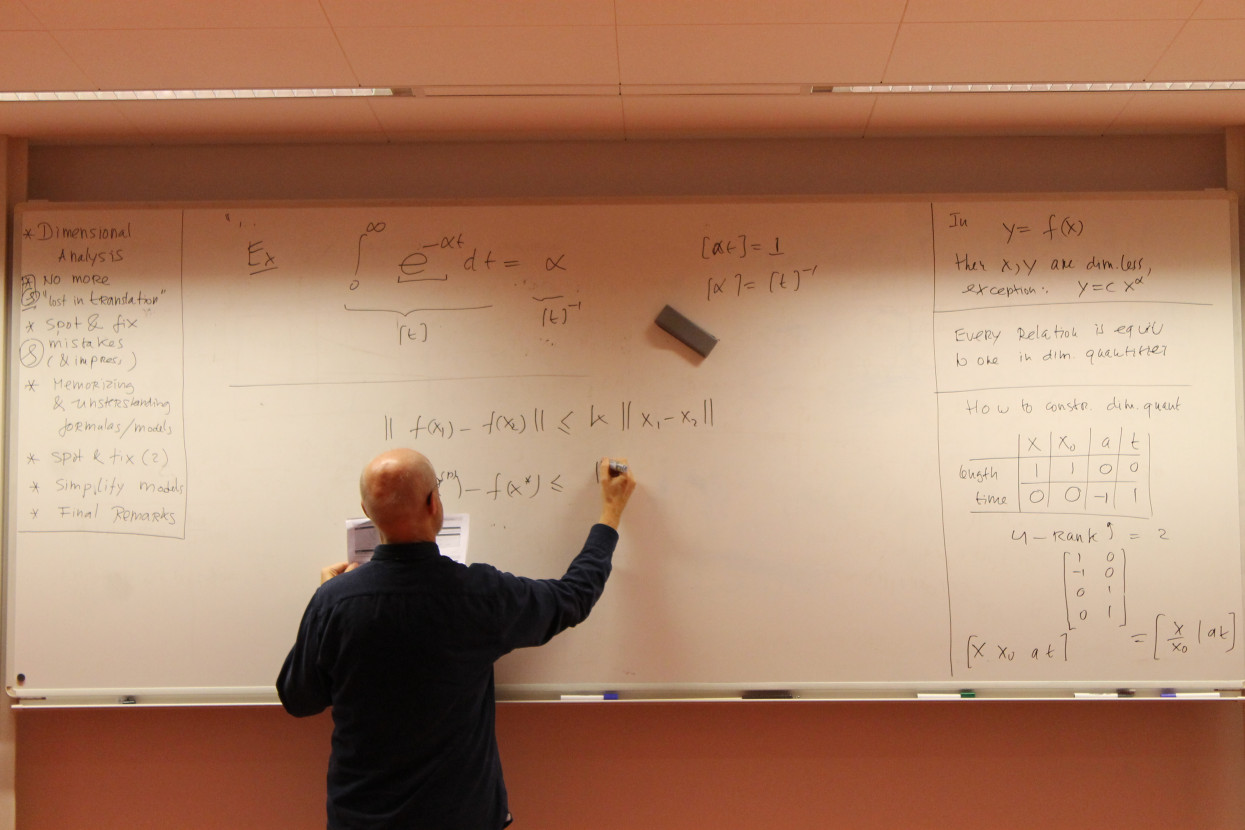 * Dimensional
Analysis
* No more
"lost in translation"
* spot & fix
mistakes
(& impress)
* Memorizing
& understanding
formulas/models
* spot & fix (2)
* Simplify models
* Final Remarks
Ex
∫₀^∞ e^{-αt} dt = α
[t]
[t]⁻¹
[αt] = 1
[α] = [t]⁻¹
|| f(x₁) - f(x₂) || ≤ k || x₁ - x₂ ||
) - f(x*) ≤
In y = f(x)
then x, y are dim.less,
exception: y = c x^α
Every Relation is equiv
to one in dim. quantities
How to constr. dim. quant
x x₀ a t
length 1 1 0 0
time 0 0 -1 1
4 - Rank = 2
1 0
-1 0
0 1
0 1
[x x₀ a t] = [x/x₀ | at]